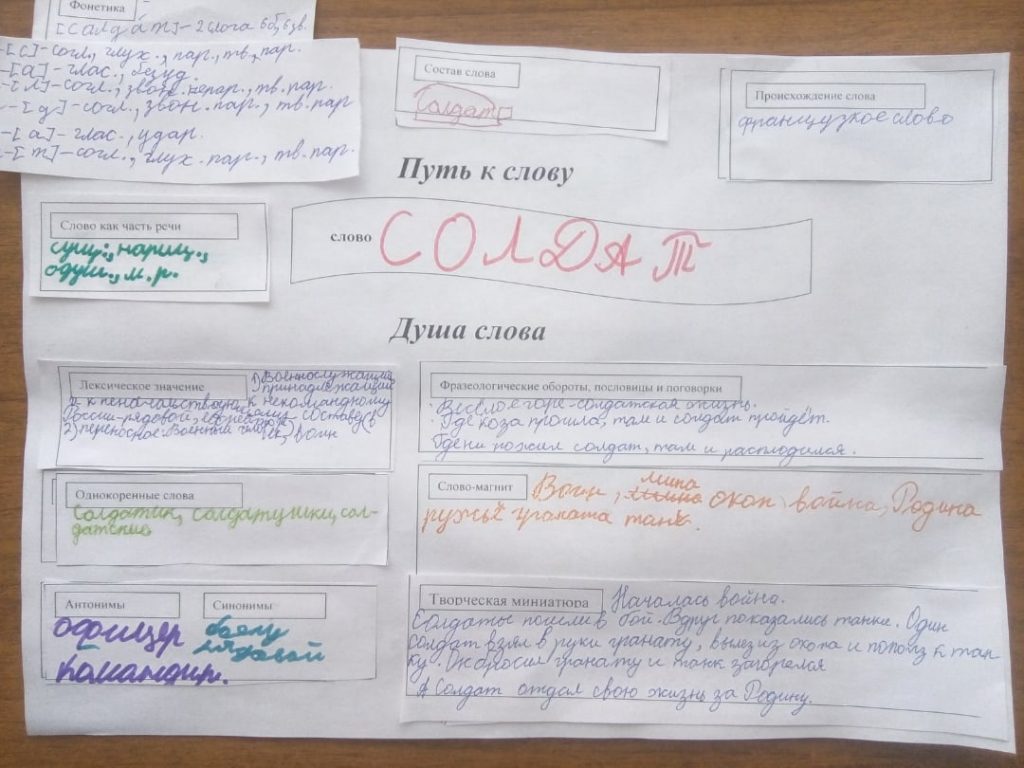 Фонетика
[салдат]-2 слога 6 б, 6 зв.
-[с]-согл., глух., пар., тв, пар.
-[а]-глас., безуд.
-[л]-согл., звон. непар., тв. пар.
-[д]-согл., звон. пар., тв. пар
-[а]-глас., удар.
-[т]-согл., глух. пар., тв. пар.
Состав слова
Солдат
Происхождение слова
французкое слово
Путь к слову
Слово как часть речи
сущ., нариц.,
одуш., м. р.
слово СОЛДАТ
Душа слова
Лексическое значение
1) Военнослужащий
принадлежащий
к некомандному
составу (в
России-рядовой,
2) переносное. Военный человек, воин
Фразеологические обороты, пословицы и поговорки
· Весёлое горе-солдатская жизнь.
· Где коза прошла, там и солдат пройдёт.
Где ни пожил солдат, там и расплодился.
Однокоренные слова
Солдатик, солдатушки, сол-
датский
Слово-магнит
Воин, мина окоп война, Родина
ружьё граната танк.
Антонимы
офицер
командир.
Синонимы
рядовой
Творческая миниатюра
Началась война.
Солдаты пошли в бой. Вдруг показались танки. Один
солдат взял в руки гранату, вылез из окопа и пополз к тан-
ку. Он бросил гранату и танк загорелся
Солдат отдал свою жизнь за Родину.